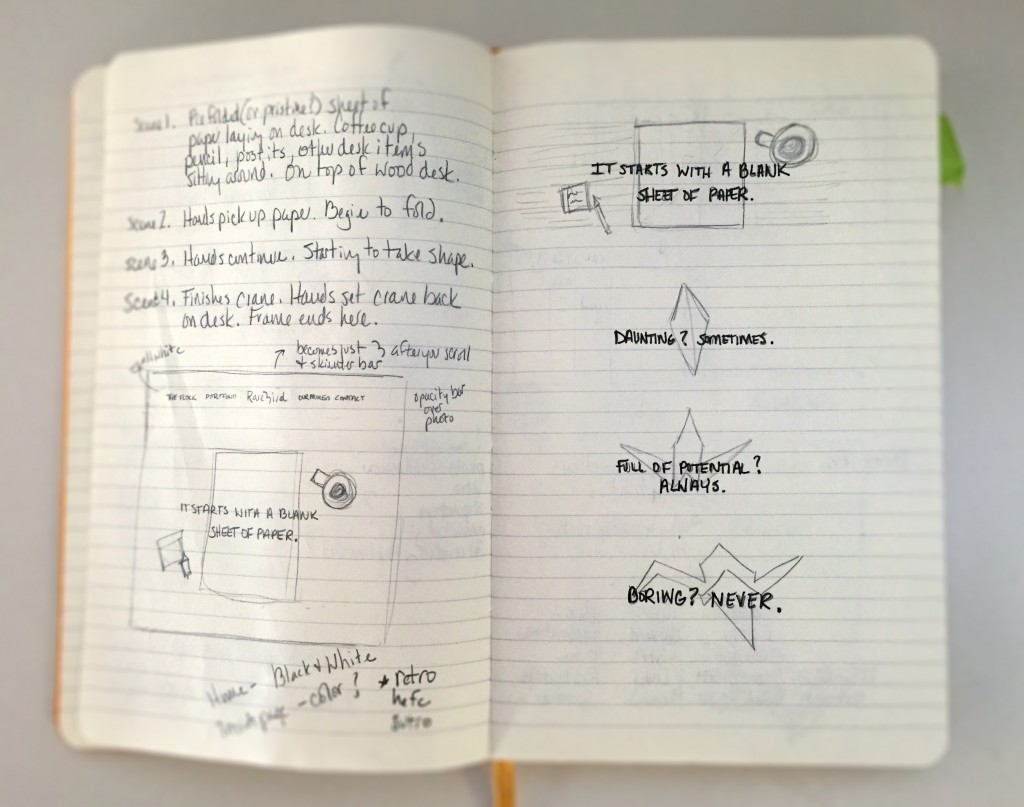 Scene 1. Prefolded (or pristine?) sheet of
paper laying on desk. Coffee cup,
pencil, postits, other desk items
sitting around. On top of wood desk.
Scene 2. Hands pick up paper. Begin to fold.
Scene 3. Hands continue. Starting to take shape.
Scene 4. Finishes crane. Hands set crane back
on desk. Frame ends here.
all white
becomes just 3 after you scroll
+ skinnier bar
THE FLOCK PORTFOLIO CONTACT
opacity bar
over
photo
IT STARTS WITH A BLANK
SHEET OF PAPER.
Home - Black & White
page - color?
* retro
IT STARTS WITH A BLANK
SHEET OF PAPER.
DAUNTING? SOMETIMES.
FULL OF POTENTIAL?
ALWAYS.
BORING? NEVER.